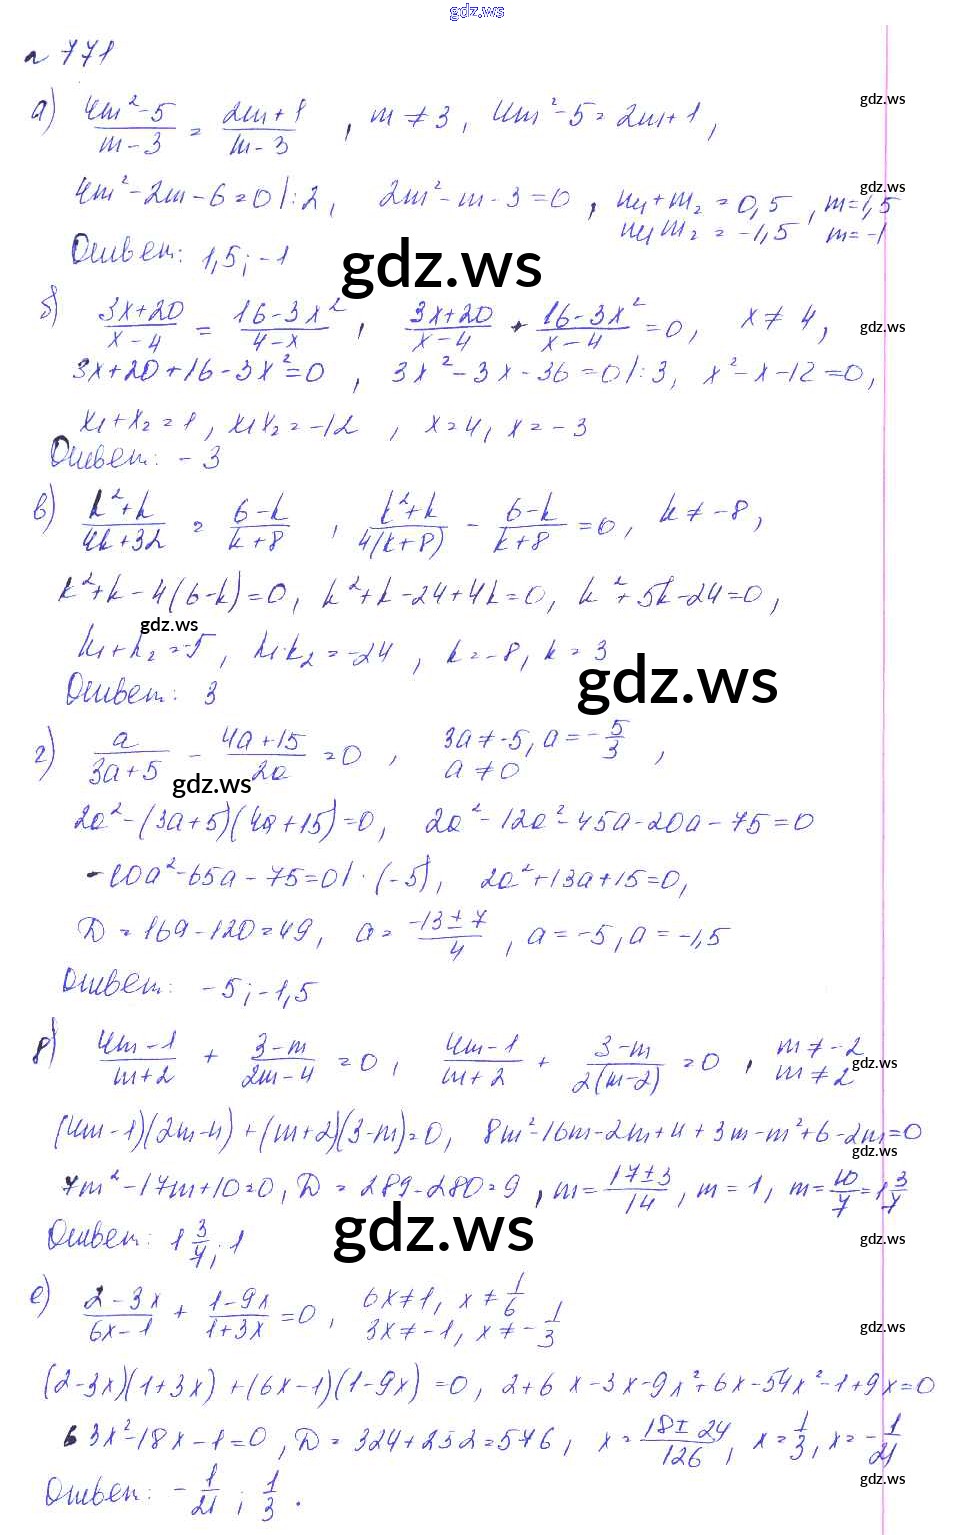 gdz.ws
n 771
а) (4m²-5)/(m-3) = (2m+1)/(m-3), m≠3, 4m²-5=2m+1, gdz.ws
4m²-2m-6=0 |:2, 2m²-m-3=0, m₁+m₂=0,5, m=1,5 gdz.ws
m₁m₂=-1,5 m=-1
Ответ: 1,5; -1 gdz.ws
б) (3x+20)/(x-4) = (16-3x²)/(4-x), (3x+20)/(x-4) + (16-3x²)/(x-4) = 0, x≠4, gdz.ws
3x+20+16-3x²=0, 3x²-3x-36=0 |:3, x²-x-12=0,
x₁+x₂=1, x₁x₂=-12, x=4, x=-3
Ответ: -3
в) (k²+k)/(4k+32) = (6-k)/(k+8), (k²+k)/4(k+8) - (6-k)/(k+8) = 0, k≠-8,
k²+k-4(6-k)=0, k²+k-24+4k=0, k²+5k-24=0,
gdz.ws
k₁+k₂=-5, k₁·k₂=-24, k=-8, k=3
Ответ: 3 gdz.ws
г) a/(3a+5) - (4a+15)/2a = 0, 3a≠-5, a=-5/3,
a≠0
gdz.ws
2a²-(3a+5)(4a+15)=0, 2a²-12a²-45a-20a-75=0
-10a²-65a-75=0 |·(-5), 2a²+13a+15=0,
D=169-120=49, a=(-13±7)/4, a=-5, a=-1,5
Ответ: -5; -1,5
д) (4m-1)/(m+2) + (3-m)/(2m-4) = 0, (4m-1)/(m+2) + (3-m)/2(m-2) = 0, m≠-2
m≠2 gdz.ws
(4m-1)(2m-4)+(m+2)(3-m)=0, 8m²-16m-2m+4+3m-m²+6-2m=0
gdz.ws
7m²-17m+10=0, D=289-280=9, m=(17±3)/14, m=1, m=10/7=1 3/7
Ответ: 1 3/7; 1 gdz.ws gdz.ws
е) (2-3x)/(6x-1) + (1-9x)/(1+3x) = 0, 6x≠1, x≠1/6
3x≠-1, x≠-1/3 gdz.ws
(2-3x)(1+3x)+(6x-1)(1-9x)=0, 2+6x-3x-9x²+6x-54x²-1+9x=0
63x²-18x-1=0, D=324+252=576, x=(18±24)/126, x=1/3, x=-1/21
Ответ: -1/21; 1/3. gdz.ws